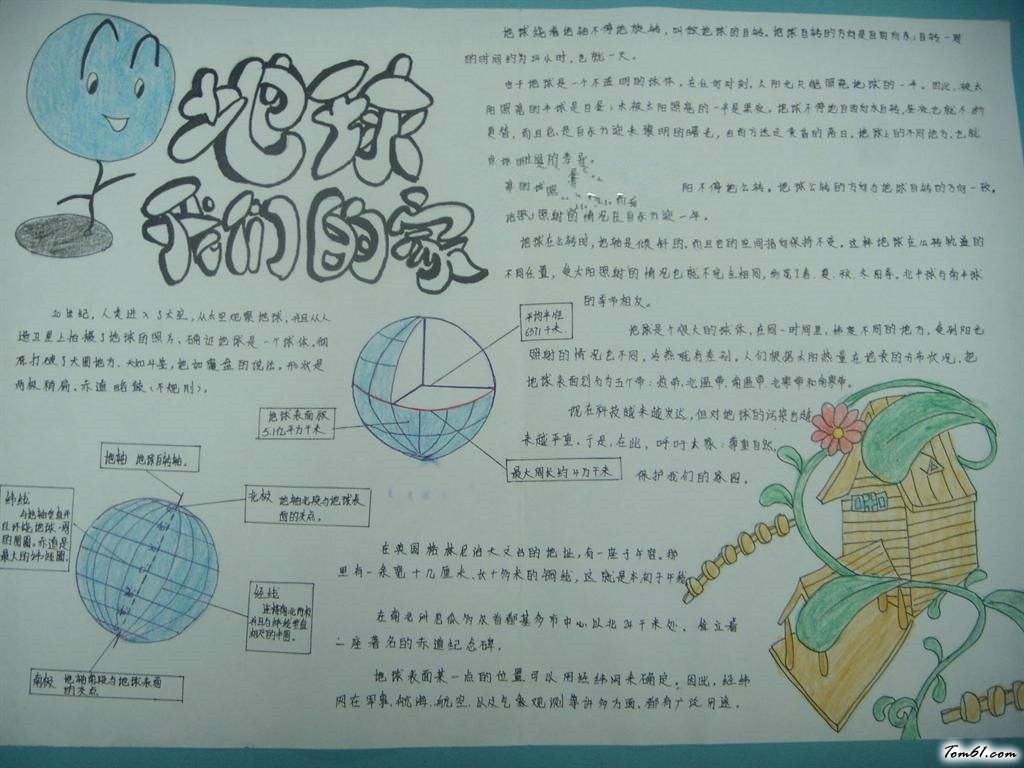 地球
我们的家
地球绕着地轴不停地旋转，叫做地球的自转。地球自转的方向是自西向东；自转一周
的时间约为24小时，也就一天。
由于地球是一个不透明的球体，在任何时刻，太阳光只能照亮地球的一半。因此，被太
阳照亮的半球是白昼；未被太阳照亮的一半是黑夜。地球不停地自西向东自转，昼夜也就不断
更替，而且总是自东方迎来黎明的曙光，自西方送走黄昏的落日。地球上的不同地方，也就
阳不停地公转。地球公转的方向与地球自转的方向一致。
地球在公转时，地轴是倾斜的，而且它的空间指向保持不变。这样地球在公转轨道的
不同位置，受太阳照射的情况也就不完全相同，形成了春、夏、秋、冬四季。北半球与南半球
的季节相反。
地球是个很大的球体，在同一时间里，纬度不同的地方，受到阳光
照射的情况也不同，冷热就有差别。人们根据太阳热量在地表的分布状况，把
地球表面划分为五个带：热带、北温带、南温带、北寒带和南寒带。
现在科技越来越发达，但对地球的污染也越
来越严重。于是，在此，呼吁大家：尊重自然，
保护我们的家园。
20世纪，人类进入了太空，从太空观察地球，并且从人
造卫星上拍摄了地球的照片，确证地球是一个球体，彻
底打破了天圆地方、天如斗笠，地如覆盘的说法。形状是
两极稍扁、赤道略鼓（不规则）。
平均半径
6371千米
地球表面积
5.1亿平方千米
最大周长约4万千米
地轴 地球自转轴。
北极 地轴北段与地球表
面的交点。
纬线
与地轴垂直并
且环绕地球一周
的圆圈。赤道是
最大的纬线圈。
经线
连接南北两极
并且与纬线垂直
相交的半圆。
南极 地轴南段与地球表面
的交点
在英国格林尼治天文台的地址，有一座子午宫，那
里有一条宽十几厘米、长十多米的铜线，这就是本初子午线
在南北洲厄瓜多尔首都基多市中心以北24千米处，耸立着
一座著名的赤道纪念碑。
地球表面某一点的位置可以用经纬网来确定。因此，经纬
网在军事、航海、航空，以及气象观测等许多方面，都有广泛用途。
Tom61.com